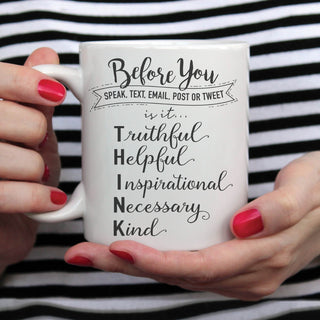 Before You
SPEAK, TEXT, EMAIL, POST OR TWEET
is it...
Truthful
Helpful
Inspirational
Necessary
Kind